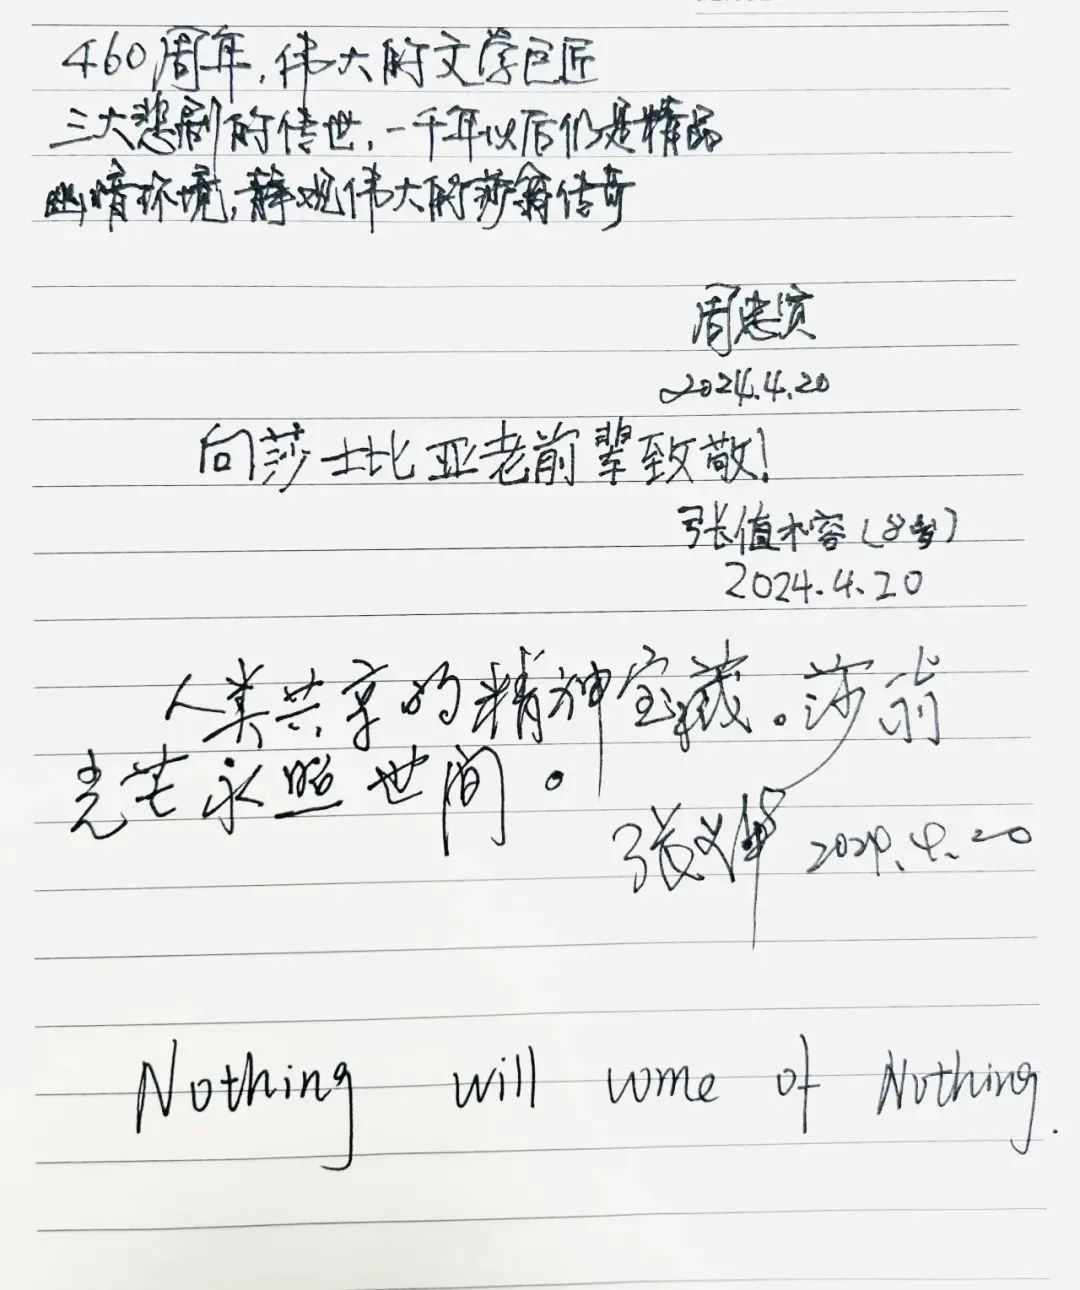 460周年,伟大的文学巨匠
三大悲剧的传世,一千年以后仍是精品
幽暗环境,静观伟大的莎翁传奇
周忠
2024.4.20
向莎士比亚老前辈致敬!
张值木容(8岁)
2024.4.20
人类共享的精神宝藏。莎翁
光芒永照世间。
张义 2024.4.20
Nothing will come of Nothing.